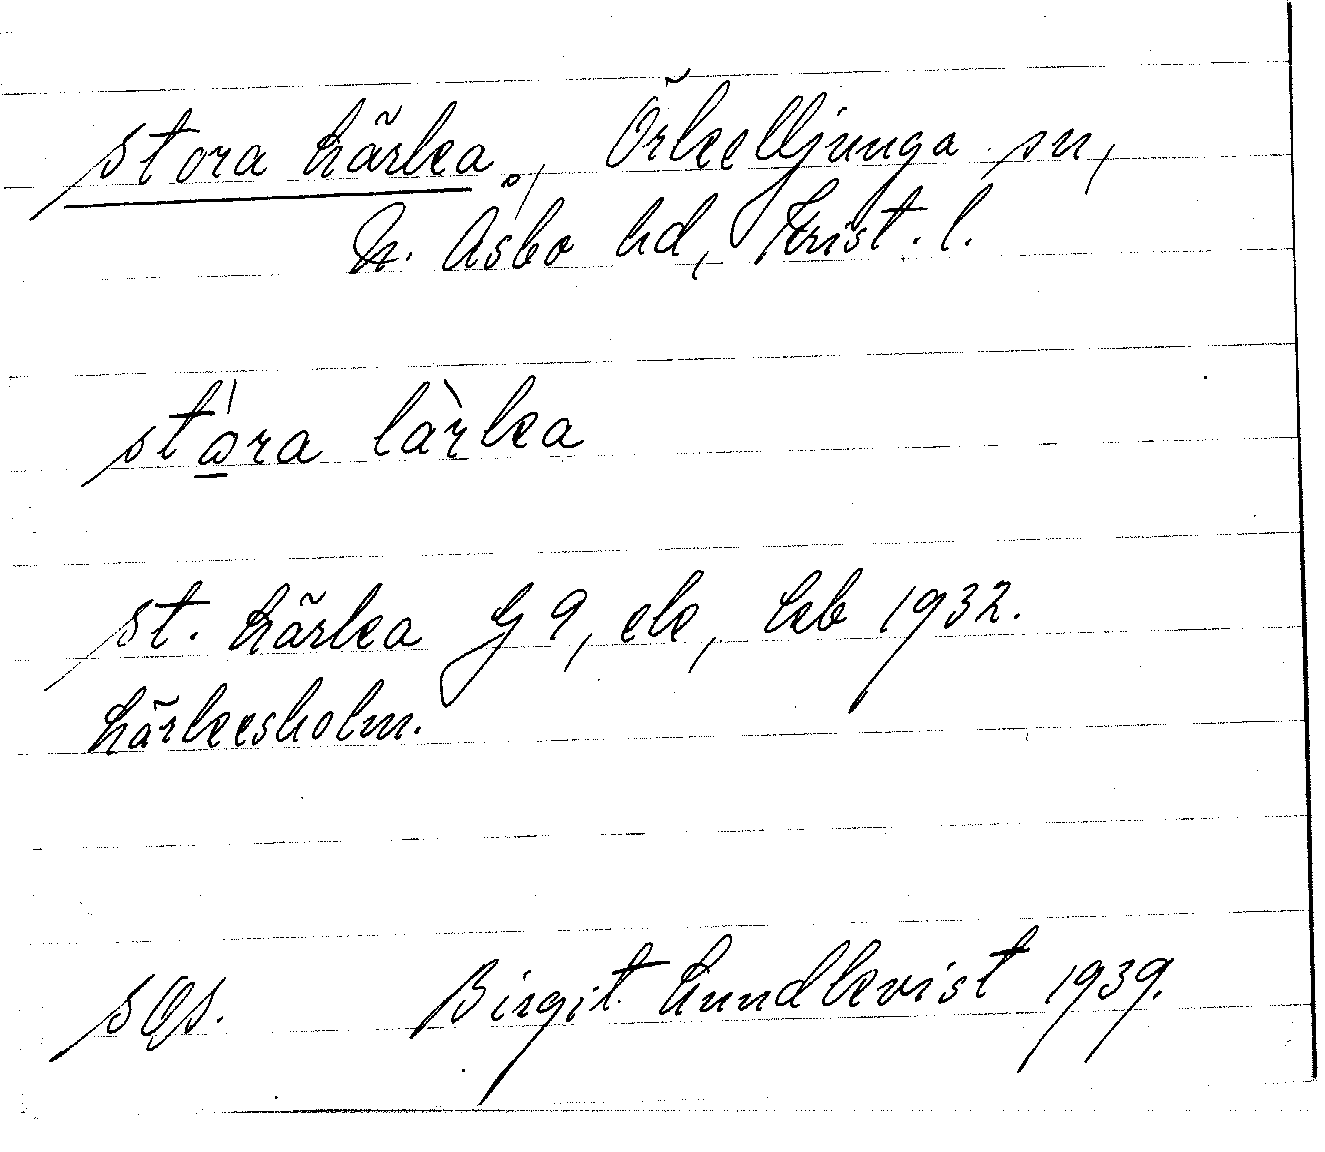 Stora Lärka, Örkelljunga sn,
N. Åsbo hd, Krist. l.
stora làrka
St. Lärka G 9, ek, Lkb 1932.
Lärkesholm.
SOS. Birgit Lundkvist 1939.